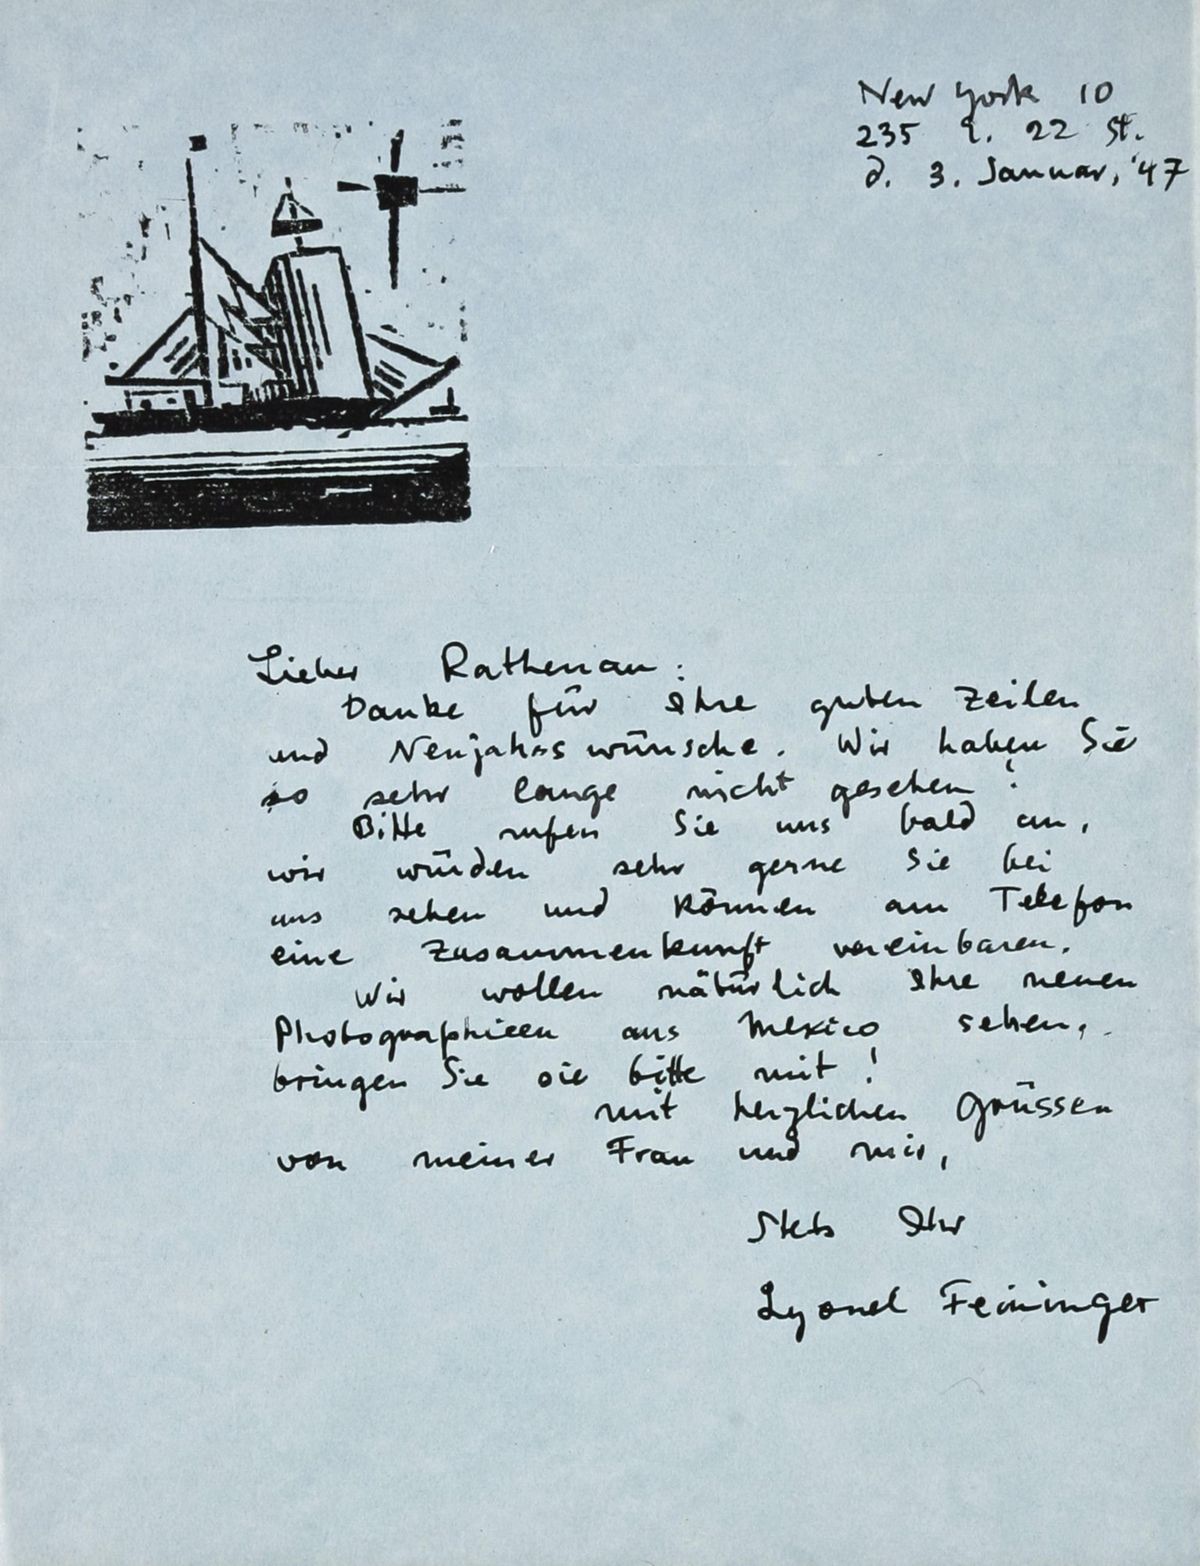 New York 10
235 E. 22 St.
d. 3. Januar, '47
Lieber Rathenau:
Danke für Ihre guten Zeilen
und Neujahrswünsche. Wir haben Sie
so sehr lange nicht gesehen!
Bitte rufen Sie uns bald an,
wir würden sehr gerne Sie bei
uns sehen und können am Telefon
eine Zusammenkunft vereinbaren.
Wir wollen natürlich Ihre neuen
Photographieen aus Mexico sehen,
bringen Sie sie bitte mit!
mit herzlichen Grüssen
von meiner Frau und mir,
Stets Ihr
Lyonel Feininger